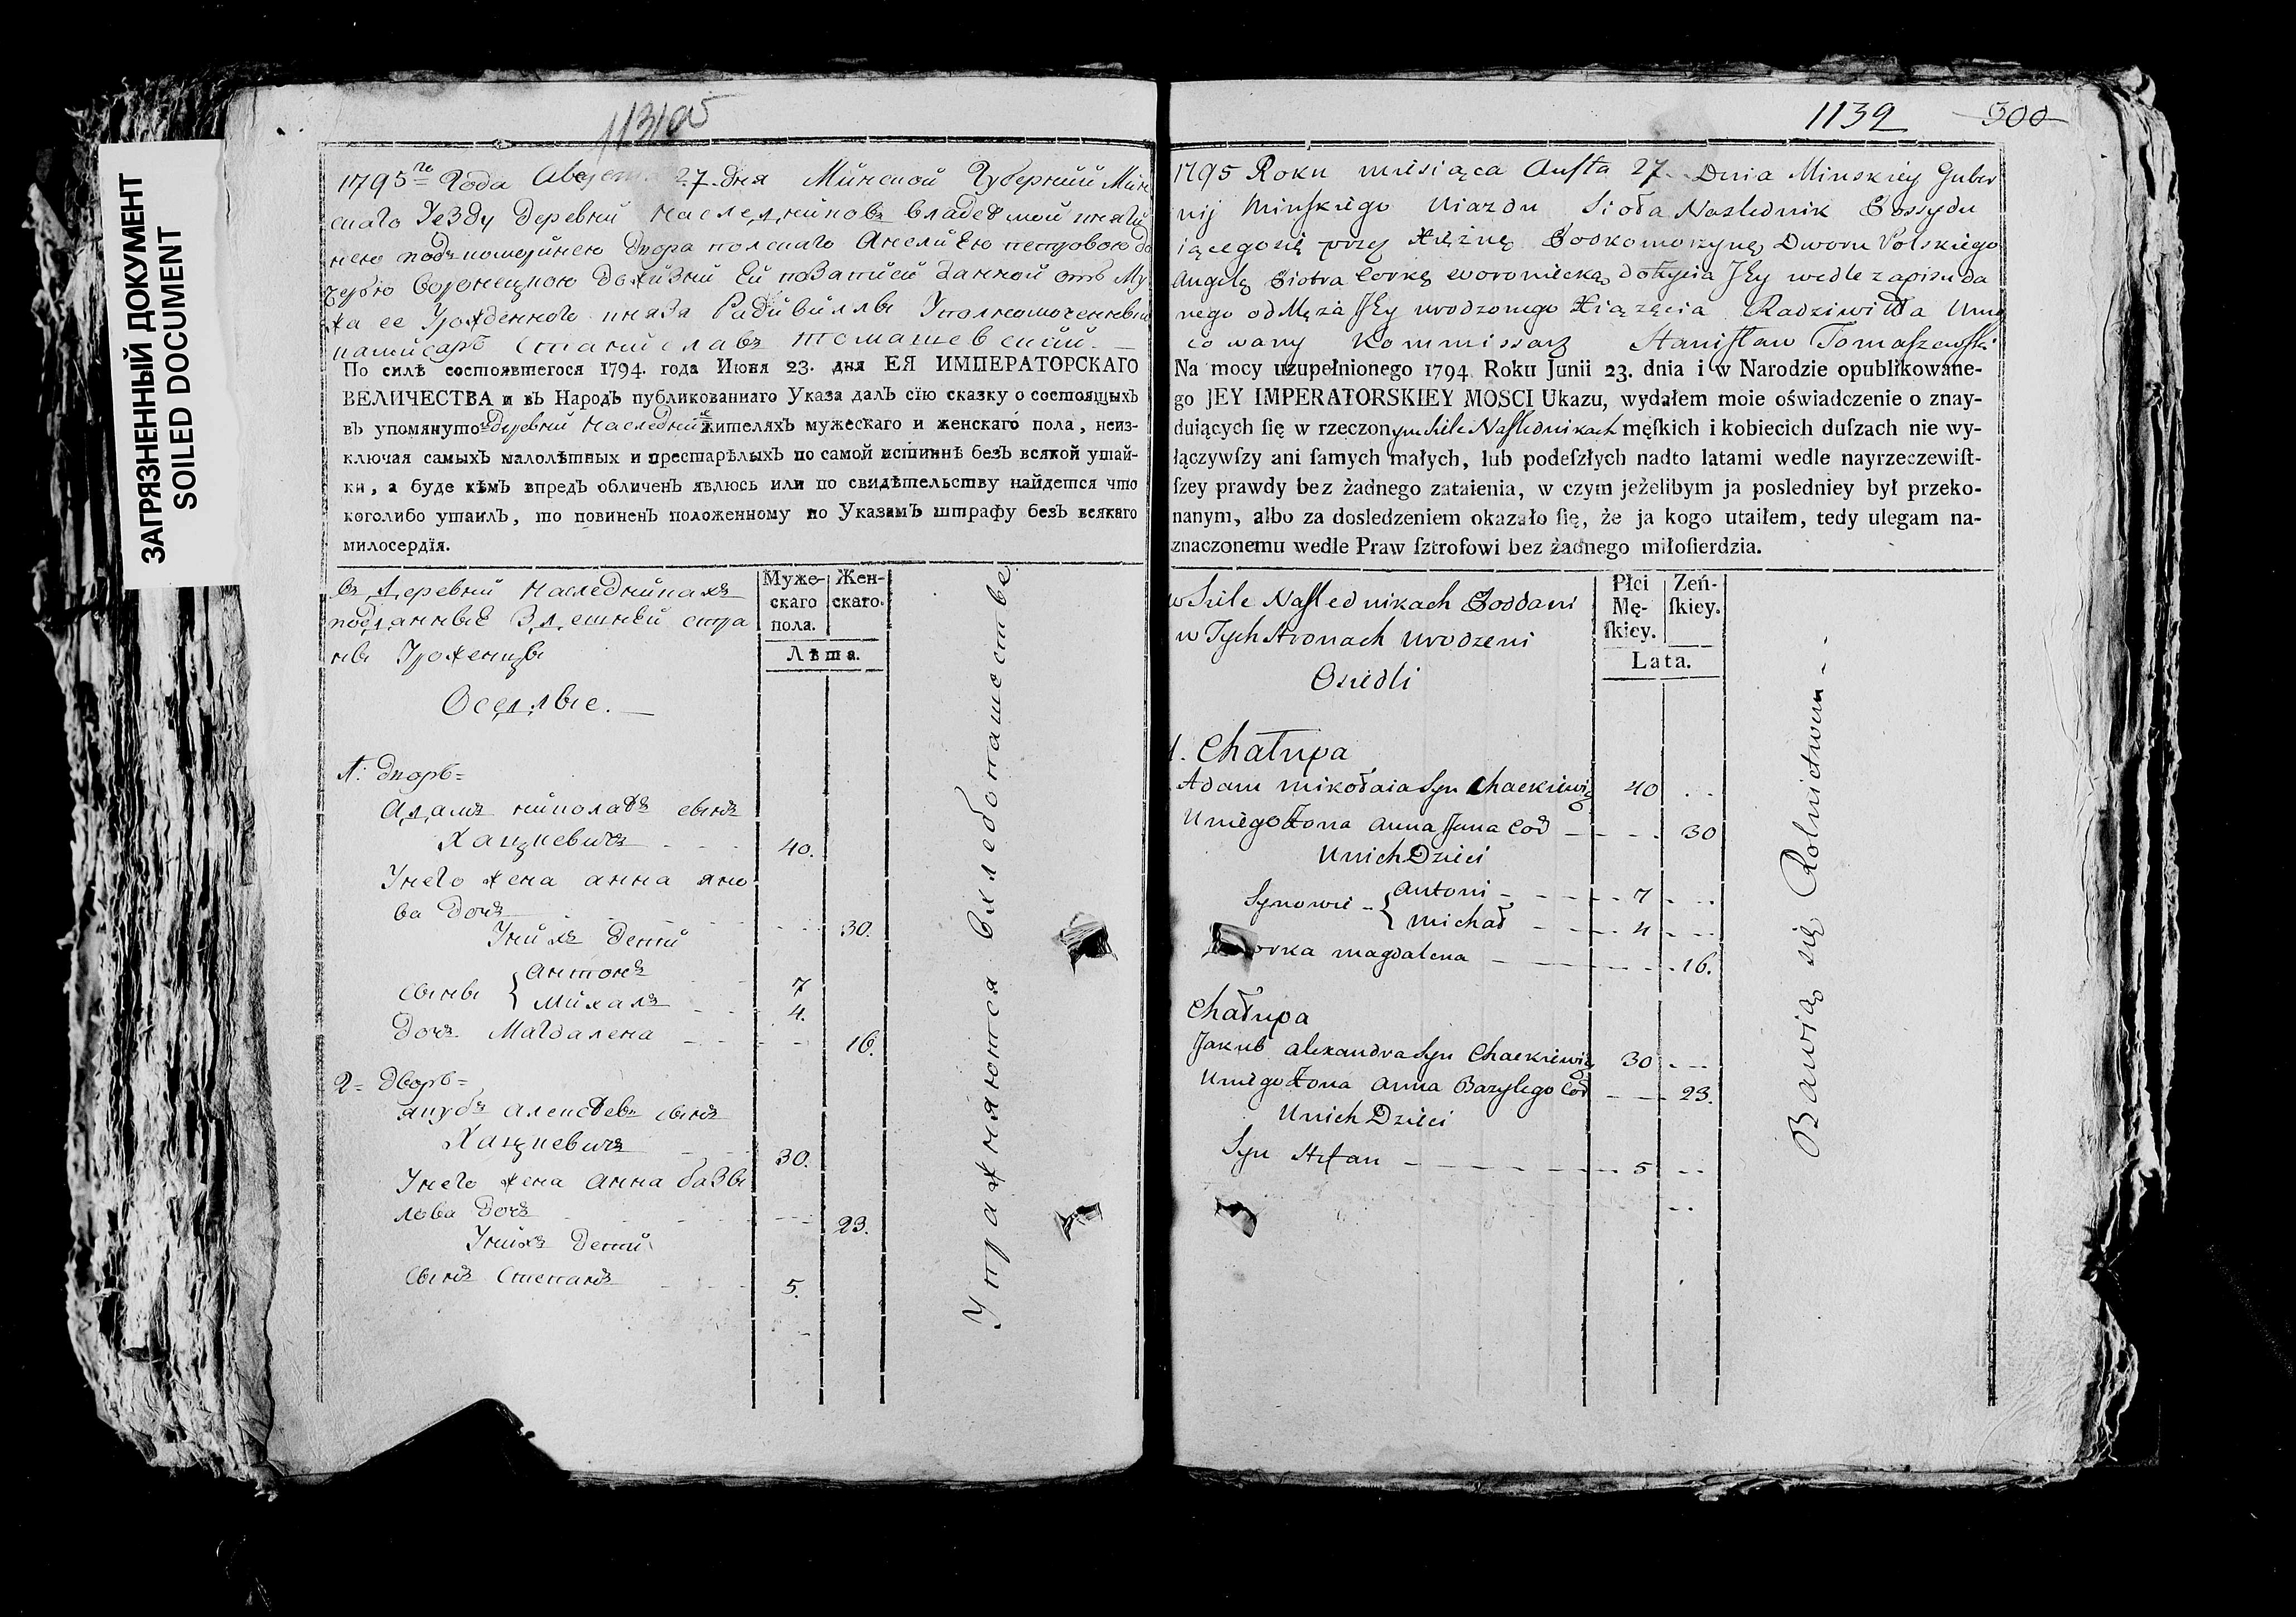 ЗАГРЯЗНЕННЫЙ ДОКУМЕНТ
SOILED DOCUMENT
1795го Года Августа 27 дня Минской Губернии Мин
скаго Уезду деревни Наследников владеемой княги
нею подкоморинею двора полскаго Анелиею петровою до
черью воронецкою дожизни Ей по записи данной отъ Му
жа ее Урожденного князя Радзивиллы Уполномоченный
комисаръ Станиславъ томашевский. —
По силѣ состоявшегося 1794. года Июня 23. дня ЕЯ ИМПЕРАТОРСКАГО
ВЕЛИЧЕСТВА и въ Народъ публикованнаго Указа далъ сїю сказку о состоящыхъ
въ упомянутой деревни Наследник жителяхъ мужескаго и женскаго пола, неиз-
ключая самыхъ малолѣтных и престарѣлыхъ по самой истиннѣ безъ всякой утай-
ки, а буде кѣмъ впредъ обличенъ явлюсь или по свидѣтельству найдется что
коголибо утаилъ, то повиненъ положенному по Указамъ штрафу безъ всякаго
милосердїя.
въ деревни наследникахъ
подданные Здешней стра
ны Уроженцы
Оседлые. —
Муже-
скаго
пола.
Жен-
скаго.
Лѣта.
1. дворъ=
Адамъ николаевъ сынъ
Хацкевичъ 40.
Унего жена анна яно
ва дочъ 30.
Унихъ дети
сыны { антонъ 7
михалъ 4.
дочъ Магдалена 16.
2= дворъ=
якубъ алексеевъ сынъ
Хацкевичъ 30.
Унего жена анна базы
лова дочъ 23.
Унихъ дети
сынъ степанъ 5.
Упражняются в хлебопашестве
1132 300
1795 Roku miesiąca Austa 27 Dnia Minskiey Guber
nij Minskiego Uiazdu Sioła Naslednik Possydu
iącegosię przez Xiężnę Podkomorzynę Dworu Polskiego
Angelę Piotra Corkę Woroniecką dożycia Jey wedle zapisu da
nego od Męża Jey urodzonego Xiążęcia Radziwiłła Umo
cowany Kommissarz Stanisław Tomaszewski
Na mocy uzupełnionego 1794 Roku Junii 23. dnia i w Narodzie opublikowane-
go JEY IMPERATORSKIEY MOSCI Ukazu, wydałem moie oświadczenie o znay-
duiących ſię w rzeczonym Siele Naslednikach męſkich i kobiecich duſzach nie wy-
łączywſzy ani ſamych małych, lub podeſzłych nadto latami wedle nayrzeczewiſt-
ſzey prawdy bez żadnego zataienia, w czym jeżelibym ja posledniey był przeko-
nanym, albo za dosledzeniem okazało ſię, że ja kogo utaiłem, tedy ulegam na-
znaczonemu wedle Praw ſztrofowi bez żadnego miłoſierdzia.
w Siele Naslednikach Poddani
w Tych Stronach urodzeni
Osiedli
Płci
Mę-
ſkiey.
Zeń-
ſkiey.
Lata.
1. Chałupa
Adam mikołaia Syn Chackiewicz 40
Uniego Żona Anna Jana Cod 30
Unich Dzieci
Synowie { Antoni 7
Michał 4
Corka magdalena 16.
Chałupa
Jakub alexandra Syn Chackiewicz 30
Uniego Żona Anna Bazylego Cod 23.
Unich Dzieci
Syn Stefan 5
Bawią się Rolnictwem